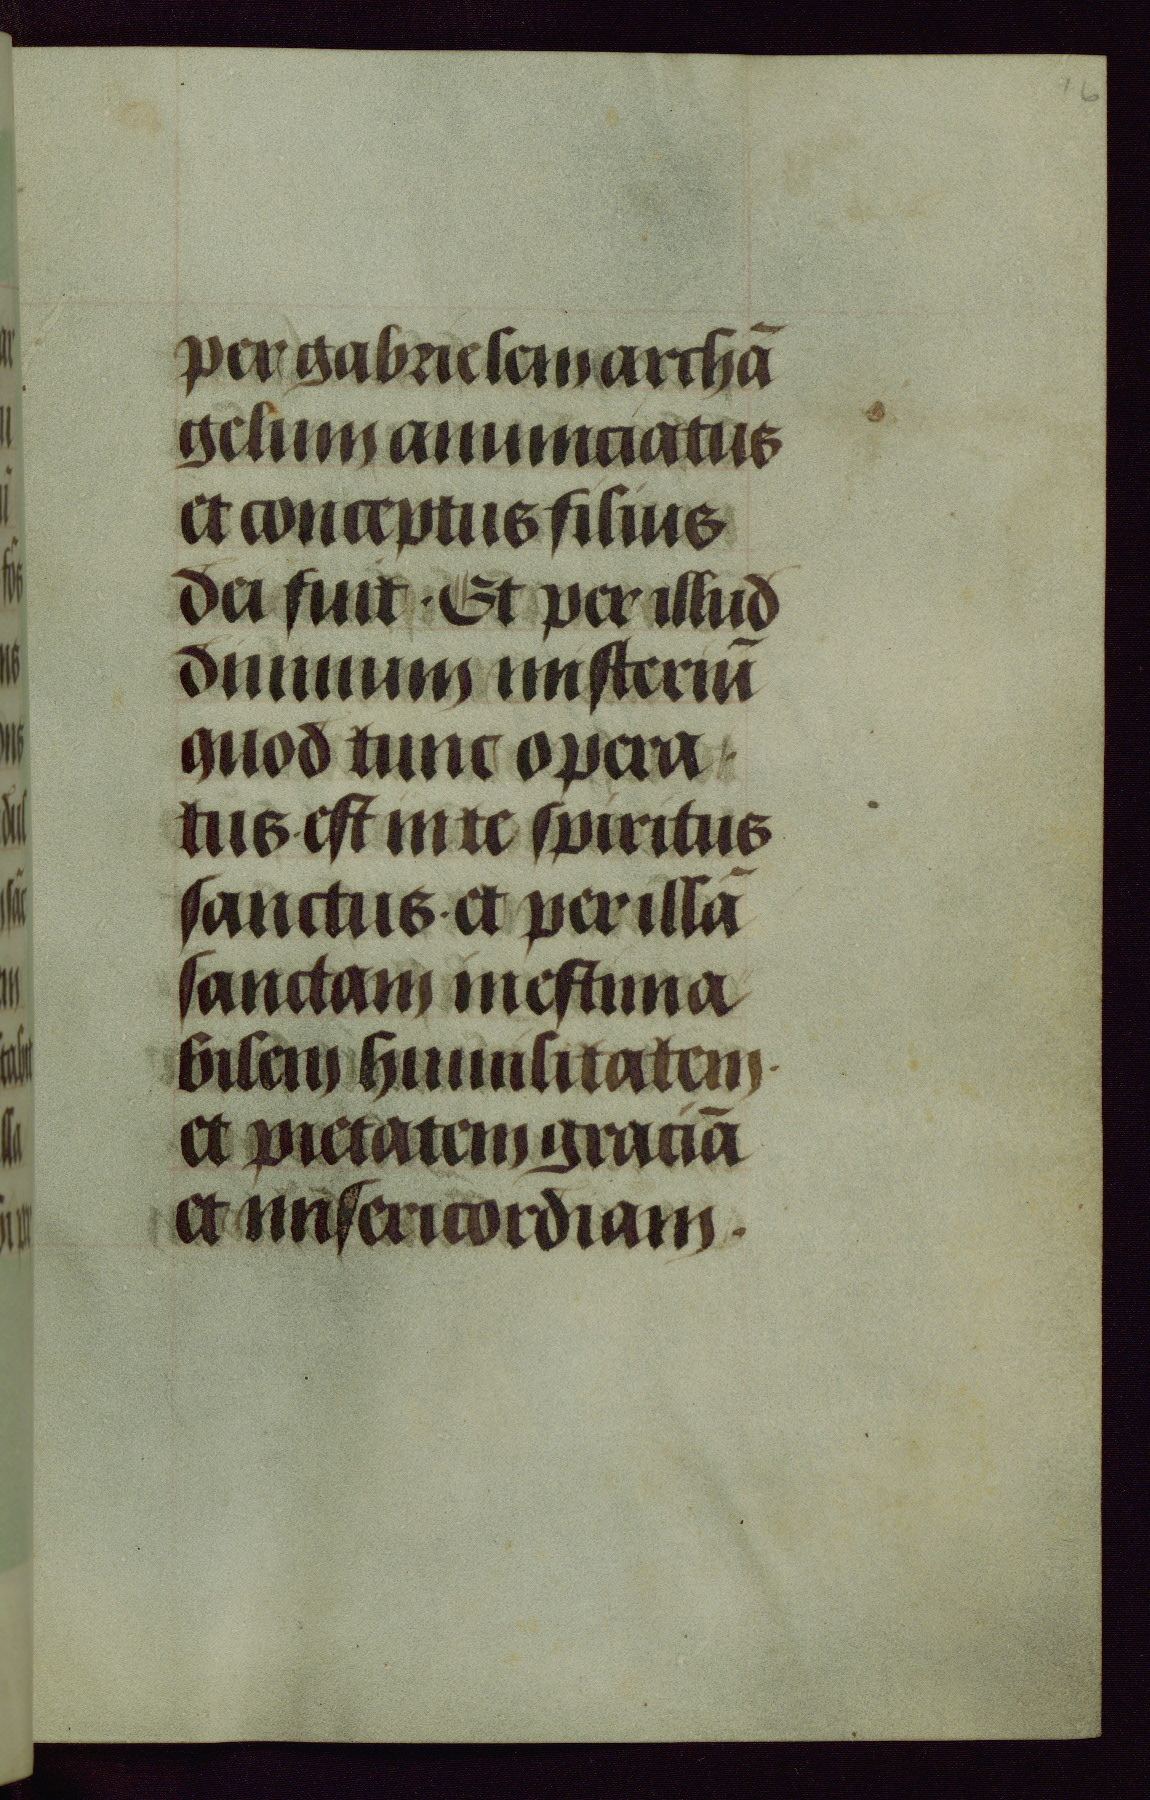 per gabrielem archā
gelum anunciatus
et conceptus filius
dei fuit · Et per illud
diuinum misteriū
quod tunc opera
tus · est in te spiritus
sanctus · et per illā
sanctam inestima
bilem humilitatem ·
et pietatem graciā
et misericordiam ·